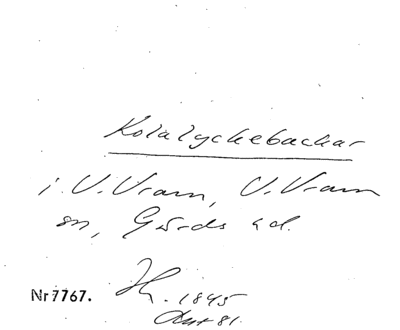 Kolalyckebackar
i V. Vram, V. Vram
sn, Gärds hd.
Nr 7767.
1845